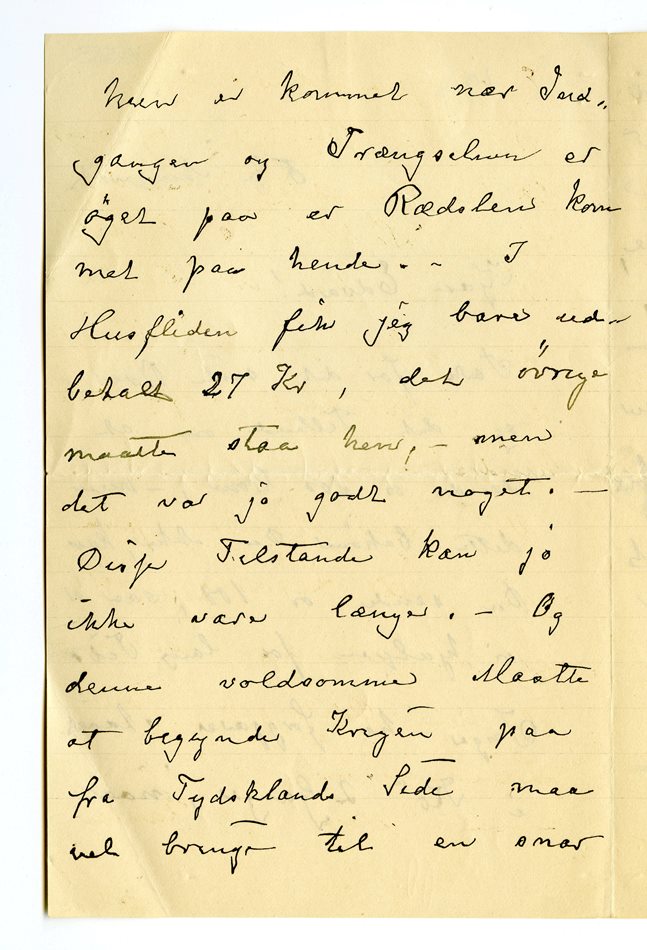 hun er kommet nær Ind-
gangen og Trængselen er
øget paa er Rædslen kom
met paa hende. - I
Husfliden fik jeg bare ud-
betalt 27 Kr, det øvrige
maatte staa hen, - men
det var jo godt noget. -
Disse Tilstande kan jo
ikke vare længe. - Og
denne voldsomme Maatte
at begynde Krigen paa
fra Tydsklands Side maa
vel bringe til en snar